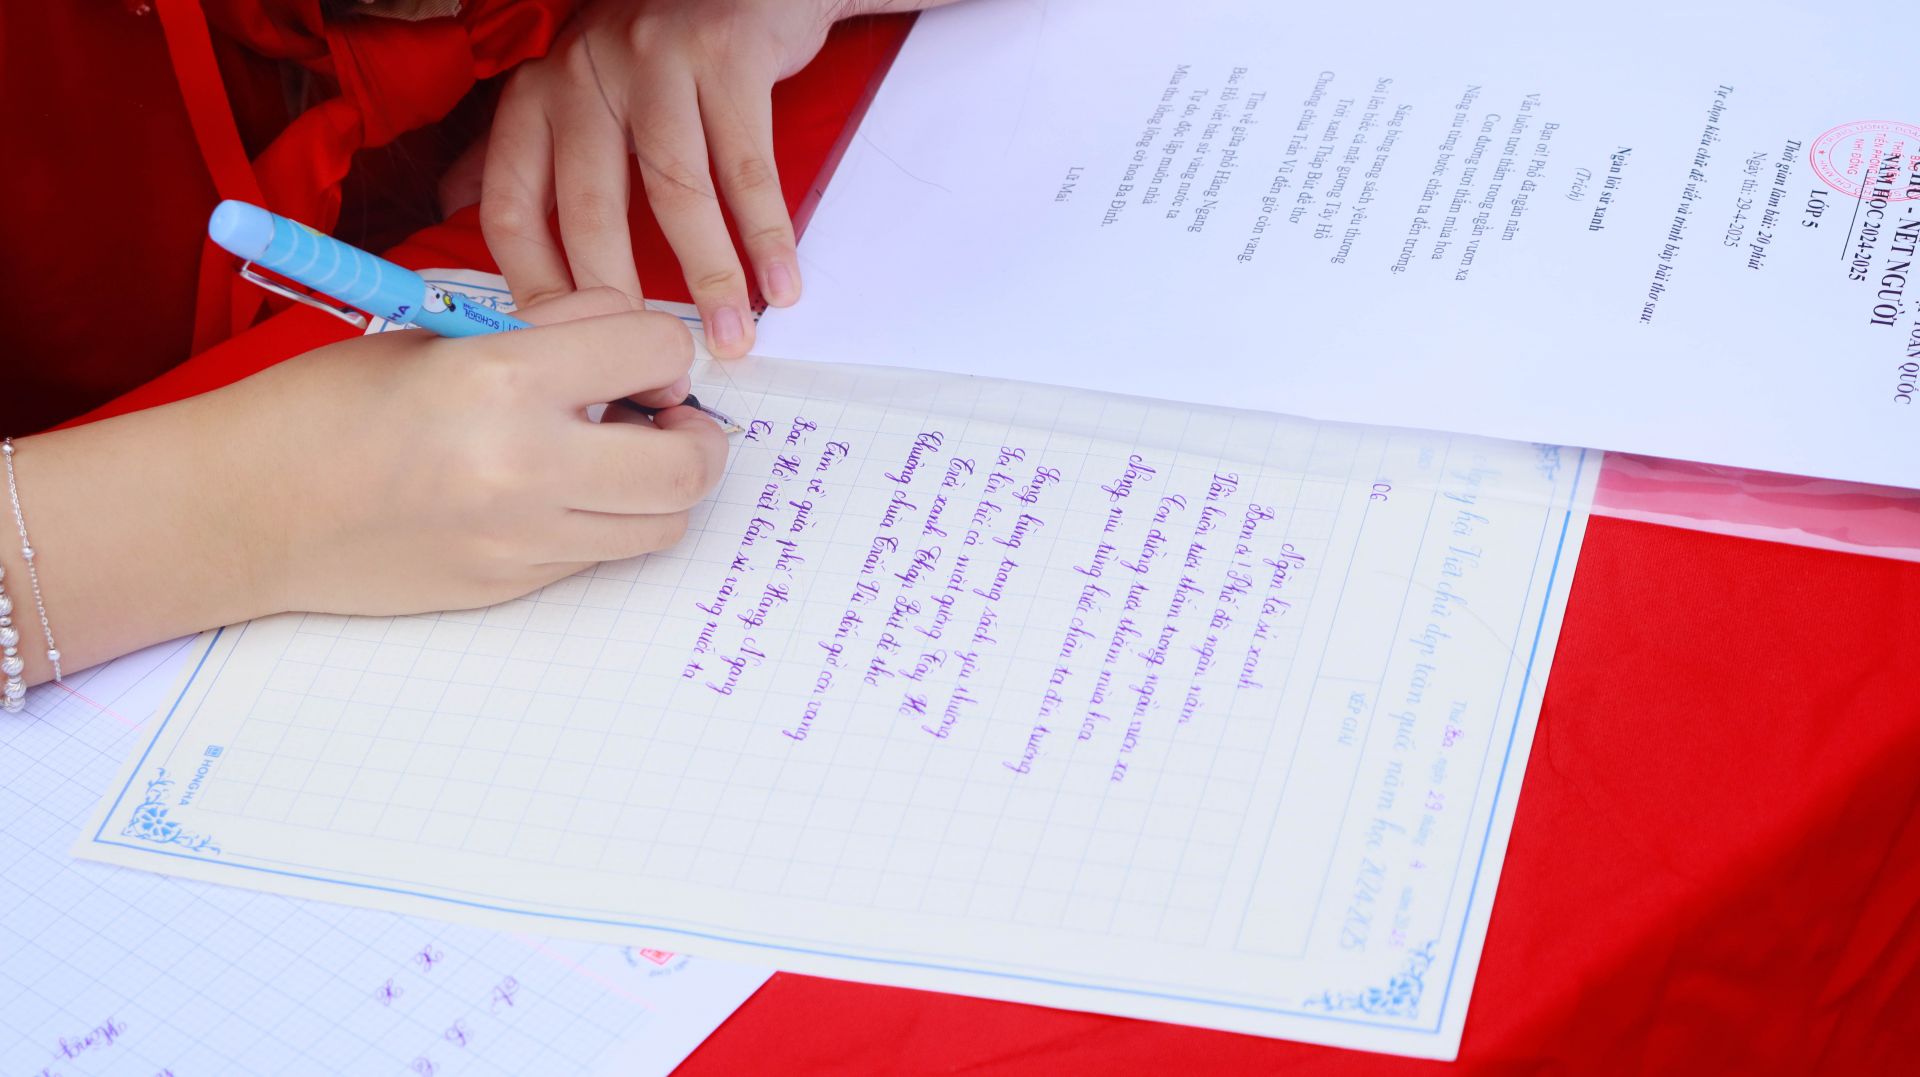 TOÀN QUỐC
CHỮ - NẾT NGƯỜI
NĂM HỌC 2024-2025
LỚP 5
Thời gian làm bài: 20 phút
Ngày thi: 29-4-2025
Tự chọn kiểu chữ để viết và trình bày bài thơ sau:
Ngàn lời sử xanh
(Trích)
Bạn ơi! Phố đã ngàn năm
Vẫn luôn tươi thắm trong ngần vươn xa
Con đường tươi thắm mùa hoa
Nâng niu từng bước chân ta đến trường.
Sáng bừng trang sách yêu thương
Soi lên biếc cả mặt gương Tây Hồ
Trời xanh Tháp Bút đề thơ
Chuông chùa Trấn Vũ đến giờ còn vang.
Tìm về giữa phố Hàng Ngang
Bác Hồ viết bản sử vàng nước ta
Tự do, độc lập muôn nhà
Mùa thu lồng lộng cờ hoa Ba Đình.
Lữ Mai
Thứ ba ngày 29 tháng 4 năm 2025
Ngày hội Viết chữ đẹp toàn quốc năm học 2024-2025
SBD
06
XẾP GIẢI
Ngàn lời sử xanh
Bạn ơi! Phố đã ngàn năm
Vẫn luôn tươi thắm trong ngần vươn xa
Con đường tươi thắm mùa hoa
Nâng niu từng bước chân ta đến trường
Sáng bừng trang sách yêu thương
Soi lên biếc cả mặt gương Tây Hồ
Trời xanh Tháp Bút đề thơ
Chuông chùa Trấn Vũ đến giờ còn vang
Tìm về giữa phố Hàng Ngang
Bác Hồ viết bản sử vàng nước ta
Tự
HONGHA
SCHOOL
HA
Hồng